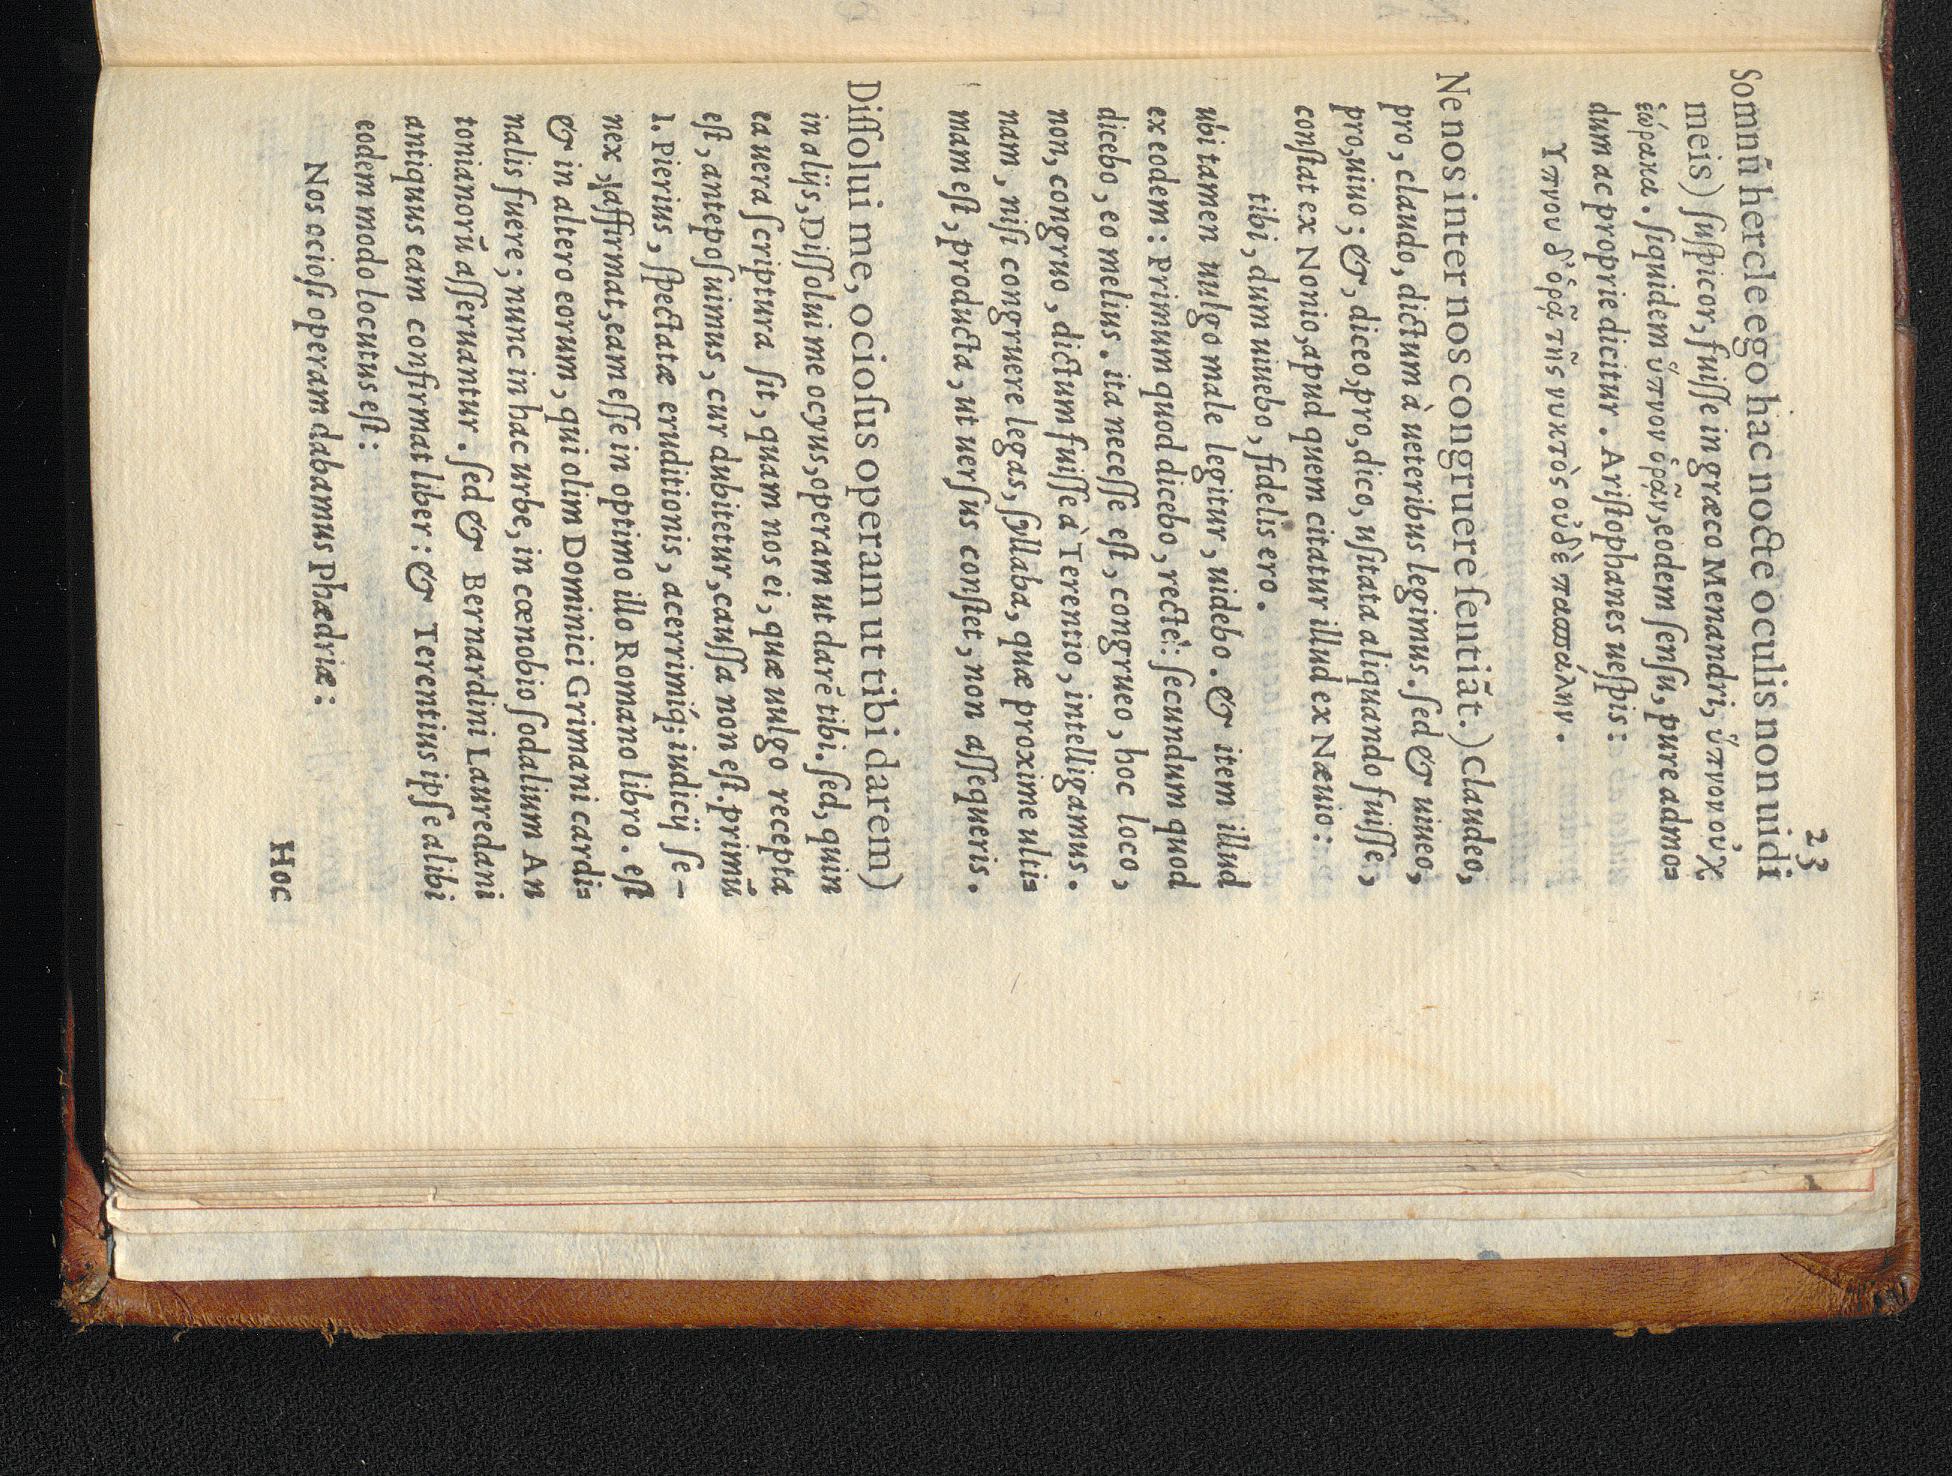 23
Somnũ hercle ego hac nocte oculis non uidi
meis) ſuſpicor, fuiſſe in græco Menandri, ὕπνον οὐχ
ἑώρακα. ſiquidem ὕπνον ὁρᾷν, eodem ſenſu, pure admo=
dum ac proprie dicitur. Ariſtophanes ueſpis:
Υπνου δ' ὁρᾷ τῆς νυκτὸς οὐδὲ πασπάλην.
Ne nos inter nos congruere ſentiãt.) Claudeo,
pro, claudo, dictum à ueteribus legimus. ſed & uiueo,
pro, uiuo; &, diceo, pro, dico, uſitata aliquando fuiſſe,
conſtat ex Nonio, apud quem citatur illud ex Næuio:
tibi, dum uiuebo, fidelis ero.
ubi tamen uulgo male legitur, uidebo. & item illud
ex eodem: Primum quod dicebo, rectè: ſecundum quod
dicebo, eo melius. ita neceſſe eſt, congrueo, hoc loco,
non, congruo, dictum fuiſſe à Terentio, intelligamus.
nam, niſi congruere legas, ſyllaba, quæ proxime ulti=
mam eſt, producta, ut uerſus conſtet, non aſſequeris.
Diſſolui me, ocioſus operam ut tibi darem)
in alijs, Diſſolui me ocyus, operam ut darẽ tibi. ſed, quin
ea uera ſcriptura ſit, quam nos ei, quæ uulgo recepta
eſt, antepoſuimus, cur dubitetur, cauſſa non eſt. primũ
I. Pierius, ſpectatæ eruditionis, acerrimiq́; iudicij ſe-
nex, affirmat, eam eſſe in optimo illo Romano libro. eſt
& in altero eorum, qui olim Dominici Grimani cardi=
nalis fuere; nunc in hac urbe, in cœnobio ſodalium An
tonianorũ aſſeruantur. ſed & Bernardini Lauredani
antiquus eam confirmat liber: & Terentius ipſe alibi
eodem modo locutus eſt:
Nos ocioſi operam dabamus Phædriæ:
Hoc